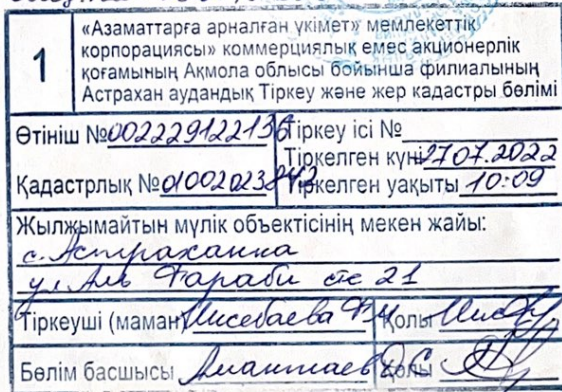 1
«Азаматтарға арналған үкімет» мемлекеттік
корпорациясы» коммерциялық емес акционерлік
қоғамының Ақмола облысы бойынша филиалының
Астрахан аудандық Тіркеу және жер кадастры бөлімі
Өтініш № 002229122136 Тіркеу ісі №
Тіркелген күні 27.07.2022
Қадастрлық № Тіркелген уақыты 10:09
Жылжымайтын мүлік объектісінің мекен жайы:
с. Астраханка
ул Аль Фараби 21
Тіркеуші (маман) Қолы
Бөлім басшысы Қолы